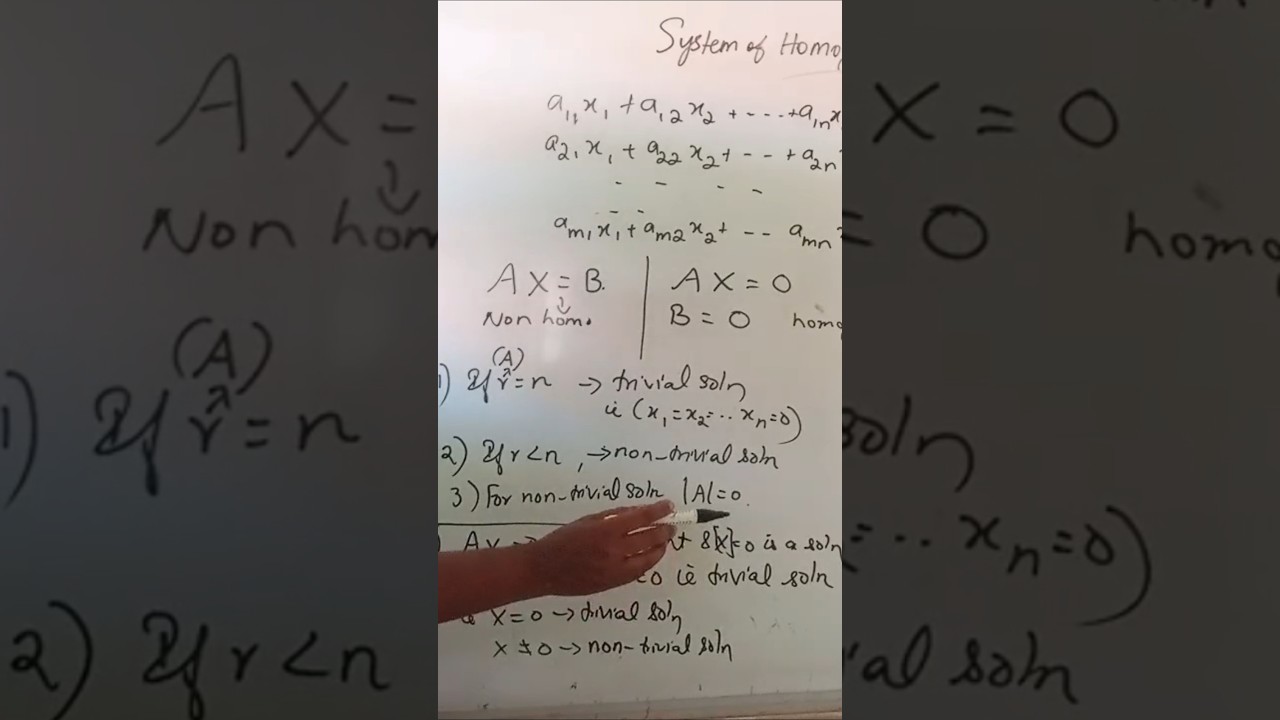 System of Homo
a₁₁x₁ + a₁₂x₂ + ---- + a₁ₙx
a₂₁x₁ + a₂₂x₂ + -- + a₂ₙ
- - - -
aₘ₁x₁ + aₘ₂x₂ + -- aₘₙ
AX = B. | AX = 0
Non hom. | B = 0 homo
(A)
1) If r = n → trivial soln
ie (x₁ = x₂ = .. xₙ = 0)
2) If r < n , → non-trivial soln
3) For non-trivial soln |A| = 0.
[X]=0 is a soln
=0 ie trivial soln
X = 0 → trivial soln
X ≠ 0 → non-trivial soln